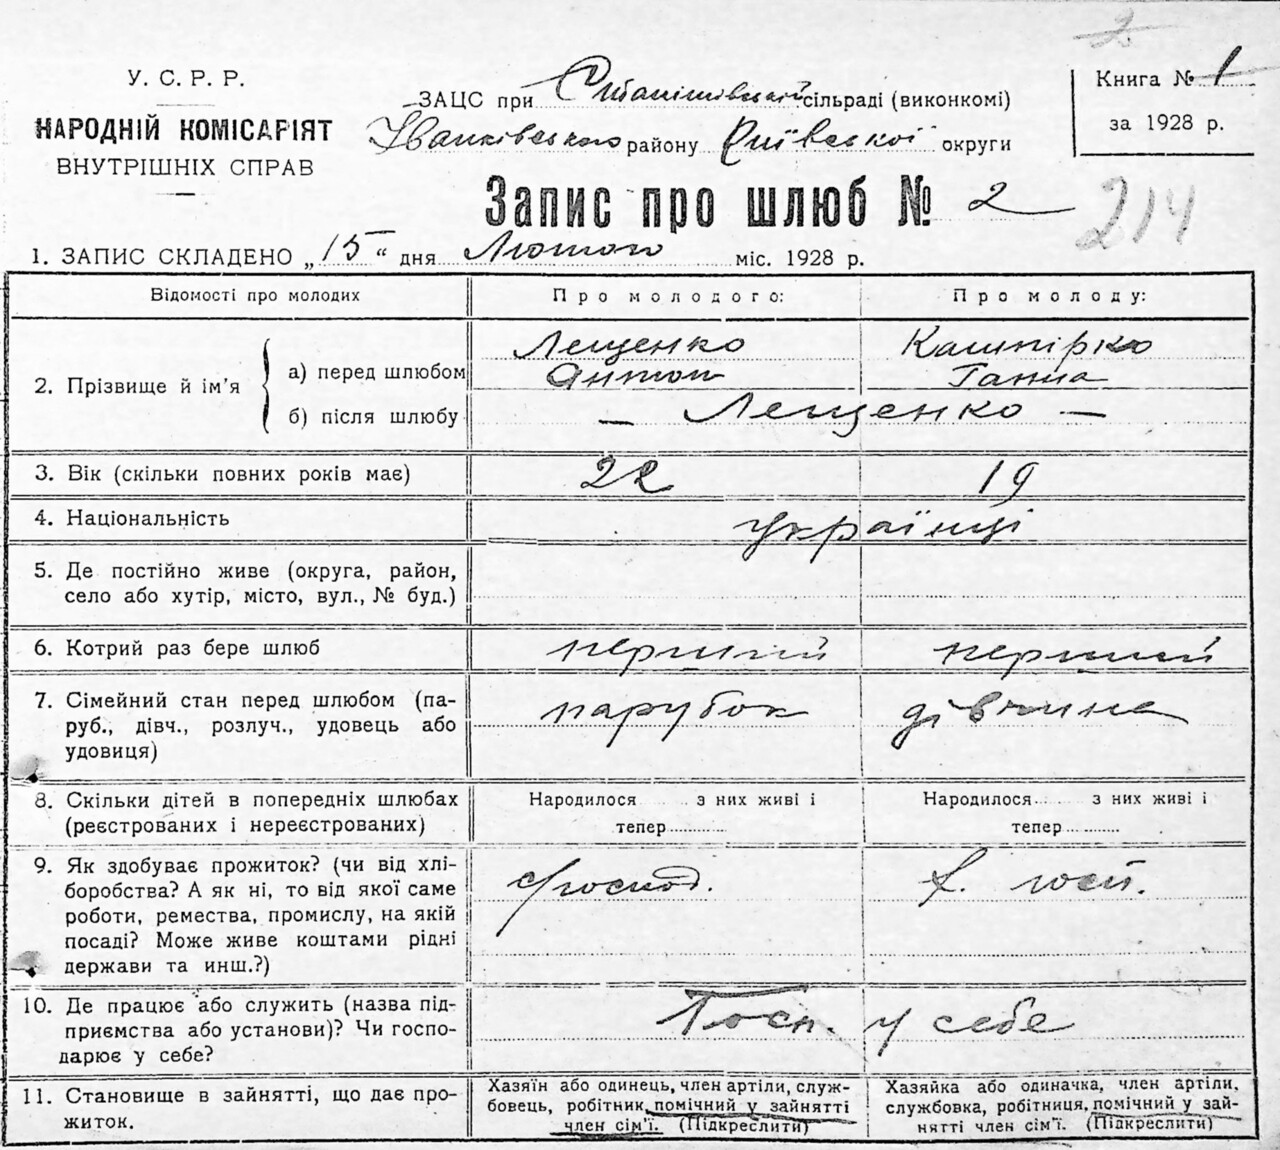 У. С. Р. Р.
НАРОДНІЙ КОМІСАРІЯТ
ВНУТРІШНІХ СПРАВ
ЗАЦС при сільраді (виконкомі)
Іванківського району Київської округи
Книга № 1
за 1928 р.
Запис про шлюб № 2
214
1. ЗАПИС СКЛАДЕНО „15“ дня Лютого міс. 1928 р.
Відомості про молодих
Про молодого:
Про молоду:
2. Прізвище й ім’я
а) перед шлюбом
Лещенко
Антон
Кашпірко
Ганна
б) після шлюбу
— Лещенко —
3. Вік (скільки повних років має)
22
19
4. Національність
українці
5. Де постійно живе (округа, район,
село або хутір, місто, вул., № буд.)
6. Котрий раз бере шлюб
перший
перший
7. Сімейний стан перед шлюбом (па-
руб., дівч., розлуч., удовець або
удовиця)
парубок
дівчина
8. Скільки дітей в попередніх шлюбах
(реєстрованих і нереєстрованих)
Народилося з них живі і
тепер
Народилося з них живі і
тепер
9. Як здобуває прожиток? (чи від хлі-
боробства? А як ні, то від якої саме
роботи, ремества, промислу, на якій
посаді? Може живе коштами рідні
держави та инш.?)
10. Де працює або служить (назва під-
приємства або установи)? Чи госпо-
дарює у себе?
Госп. у себе
11. Становище в зайнятті, що дає про-
житок.
Хазяїн або одинець, член артіли, служ-
бовець, робітник, помічний у зайнятті
член сім’ї. (Підкреслити)
Хазяйка або одиначка, член артіли,
службовка, робітниця, помічний у зай-
нятті член сім’ї. (Підкреслити)